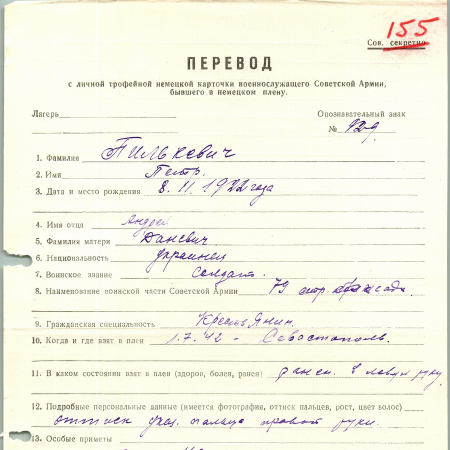 155
Сов. секретно
ПЕРЕВОД
с личной трофейной немецкой карточки военнослужащего Советской Армии,
бывшего в немецком плену.
Лагерь
Опознавательный знак
№ 929
1. Фамилия Пилькевич
2. Имя Петр.
3. Дата и место рождения 8.11.1922 года
4. Имя отца Андрей
5. Фамилия матери Даневич.
6. Национальность украинец
7. Воинское звание солдат.
8. Наименование воинской части Советской Армии 79 стр. бригада.
9. Гражданская специальность Крестьянин.
10. Когда и где взят в плен 1.7.42 - Севастополь.
11. В каком состоянии взят в плен (здоров, болен, ранен) ранен в левую руку
12. Подробные персональные данные (имеется фотография, оттиск пальцев, рост, цвет волос)
оттиск указ. пальца правой руки.
13. Особые приметы